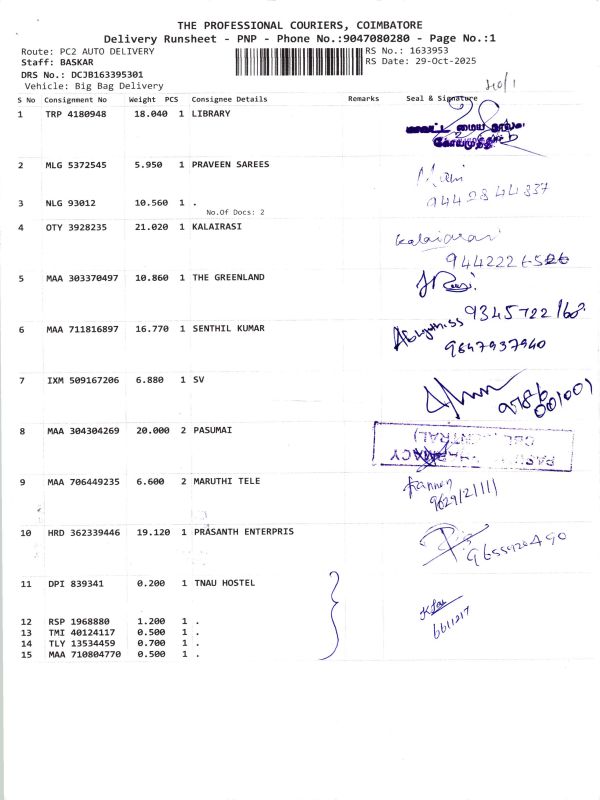 THE PROFESSIONAL COURIERS, COIMBATORE
Delivery Runsheet - PNP - Phone No.:9047080280 - Page No.:1
Route: PC2 AUTO DELIVERY RS No.: 1633953
Staff: BASKAR RS Date: 29-Oct-2025
DRS No.: DCJB163395301
Vehicle: Big Bag Delivery
S No Consignment No Weight PCS Consignee Details Remarks Seal & Signature
1 TRP 4180948 18.040 1 LIBRARY
2 MLG 5372545 5.950 1 PRAVEEN SAREES
Mani
9442844837
3 NLG 93012 10.560 1 .
No.Of Docs: 2
4 OTY 3928235 21.020 1 KALAIRASI
kalaiarasi
5 MAA 303370497 10.860 1 THE GREENLAND
6 MAA 711816897 16.770 1 SENTHIL KUMAR
9847937940
7 IXM 509167206 6.880 1 SV
8 MAA 304304269 20.000 2 PASUMAI
9 MAA 706449235 6.600 2 MARUTHI TELE
Kannan
9629121111
10 HRD 362339446 19.120 1 PRASANTH ENTERPRIS
9655920490
11 DPI 839341 0.200 1 TNAU HOSTEL
6611217
12 RSP 1968880 1.200 1 .
13 TMI 40124117 0.500 1 .
14 TLY 13534459 0.700 1 .
15 MAA 710804770 0.500 1 .